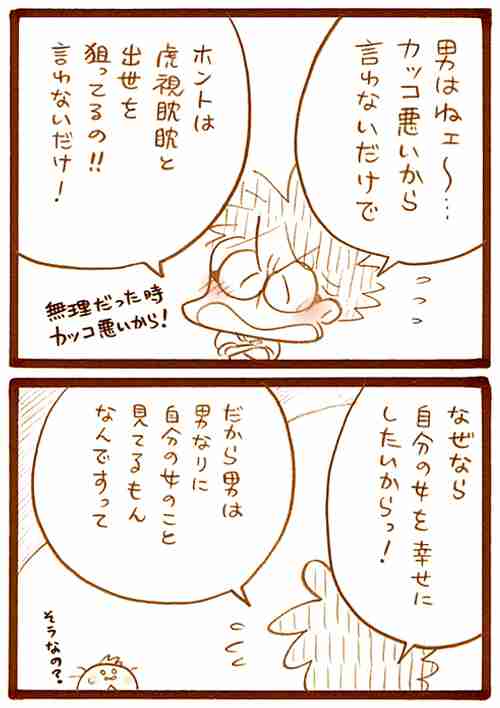 男はねェ〜…
カッコ悪いから
言わないだけで
ホントは
虎視眈眈と
出世を
狙ってるの!!
言わないだけ!
無理だった時
カッコ悪いから!
なぜなら
自分の女を幸せに
したいからっ!
だから男は
男なりに
自分の女のこと
見てるもん
なんですって
そうなの?